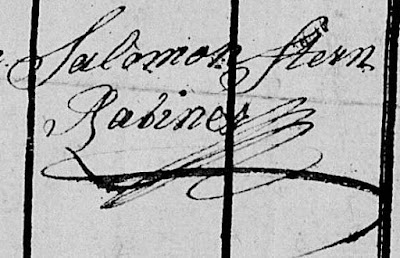 Salomon Stern
Rabiner